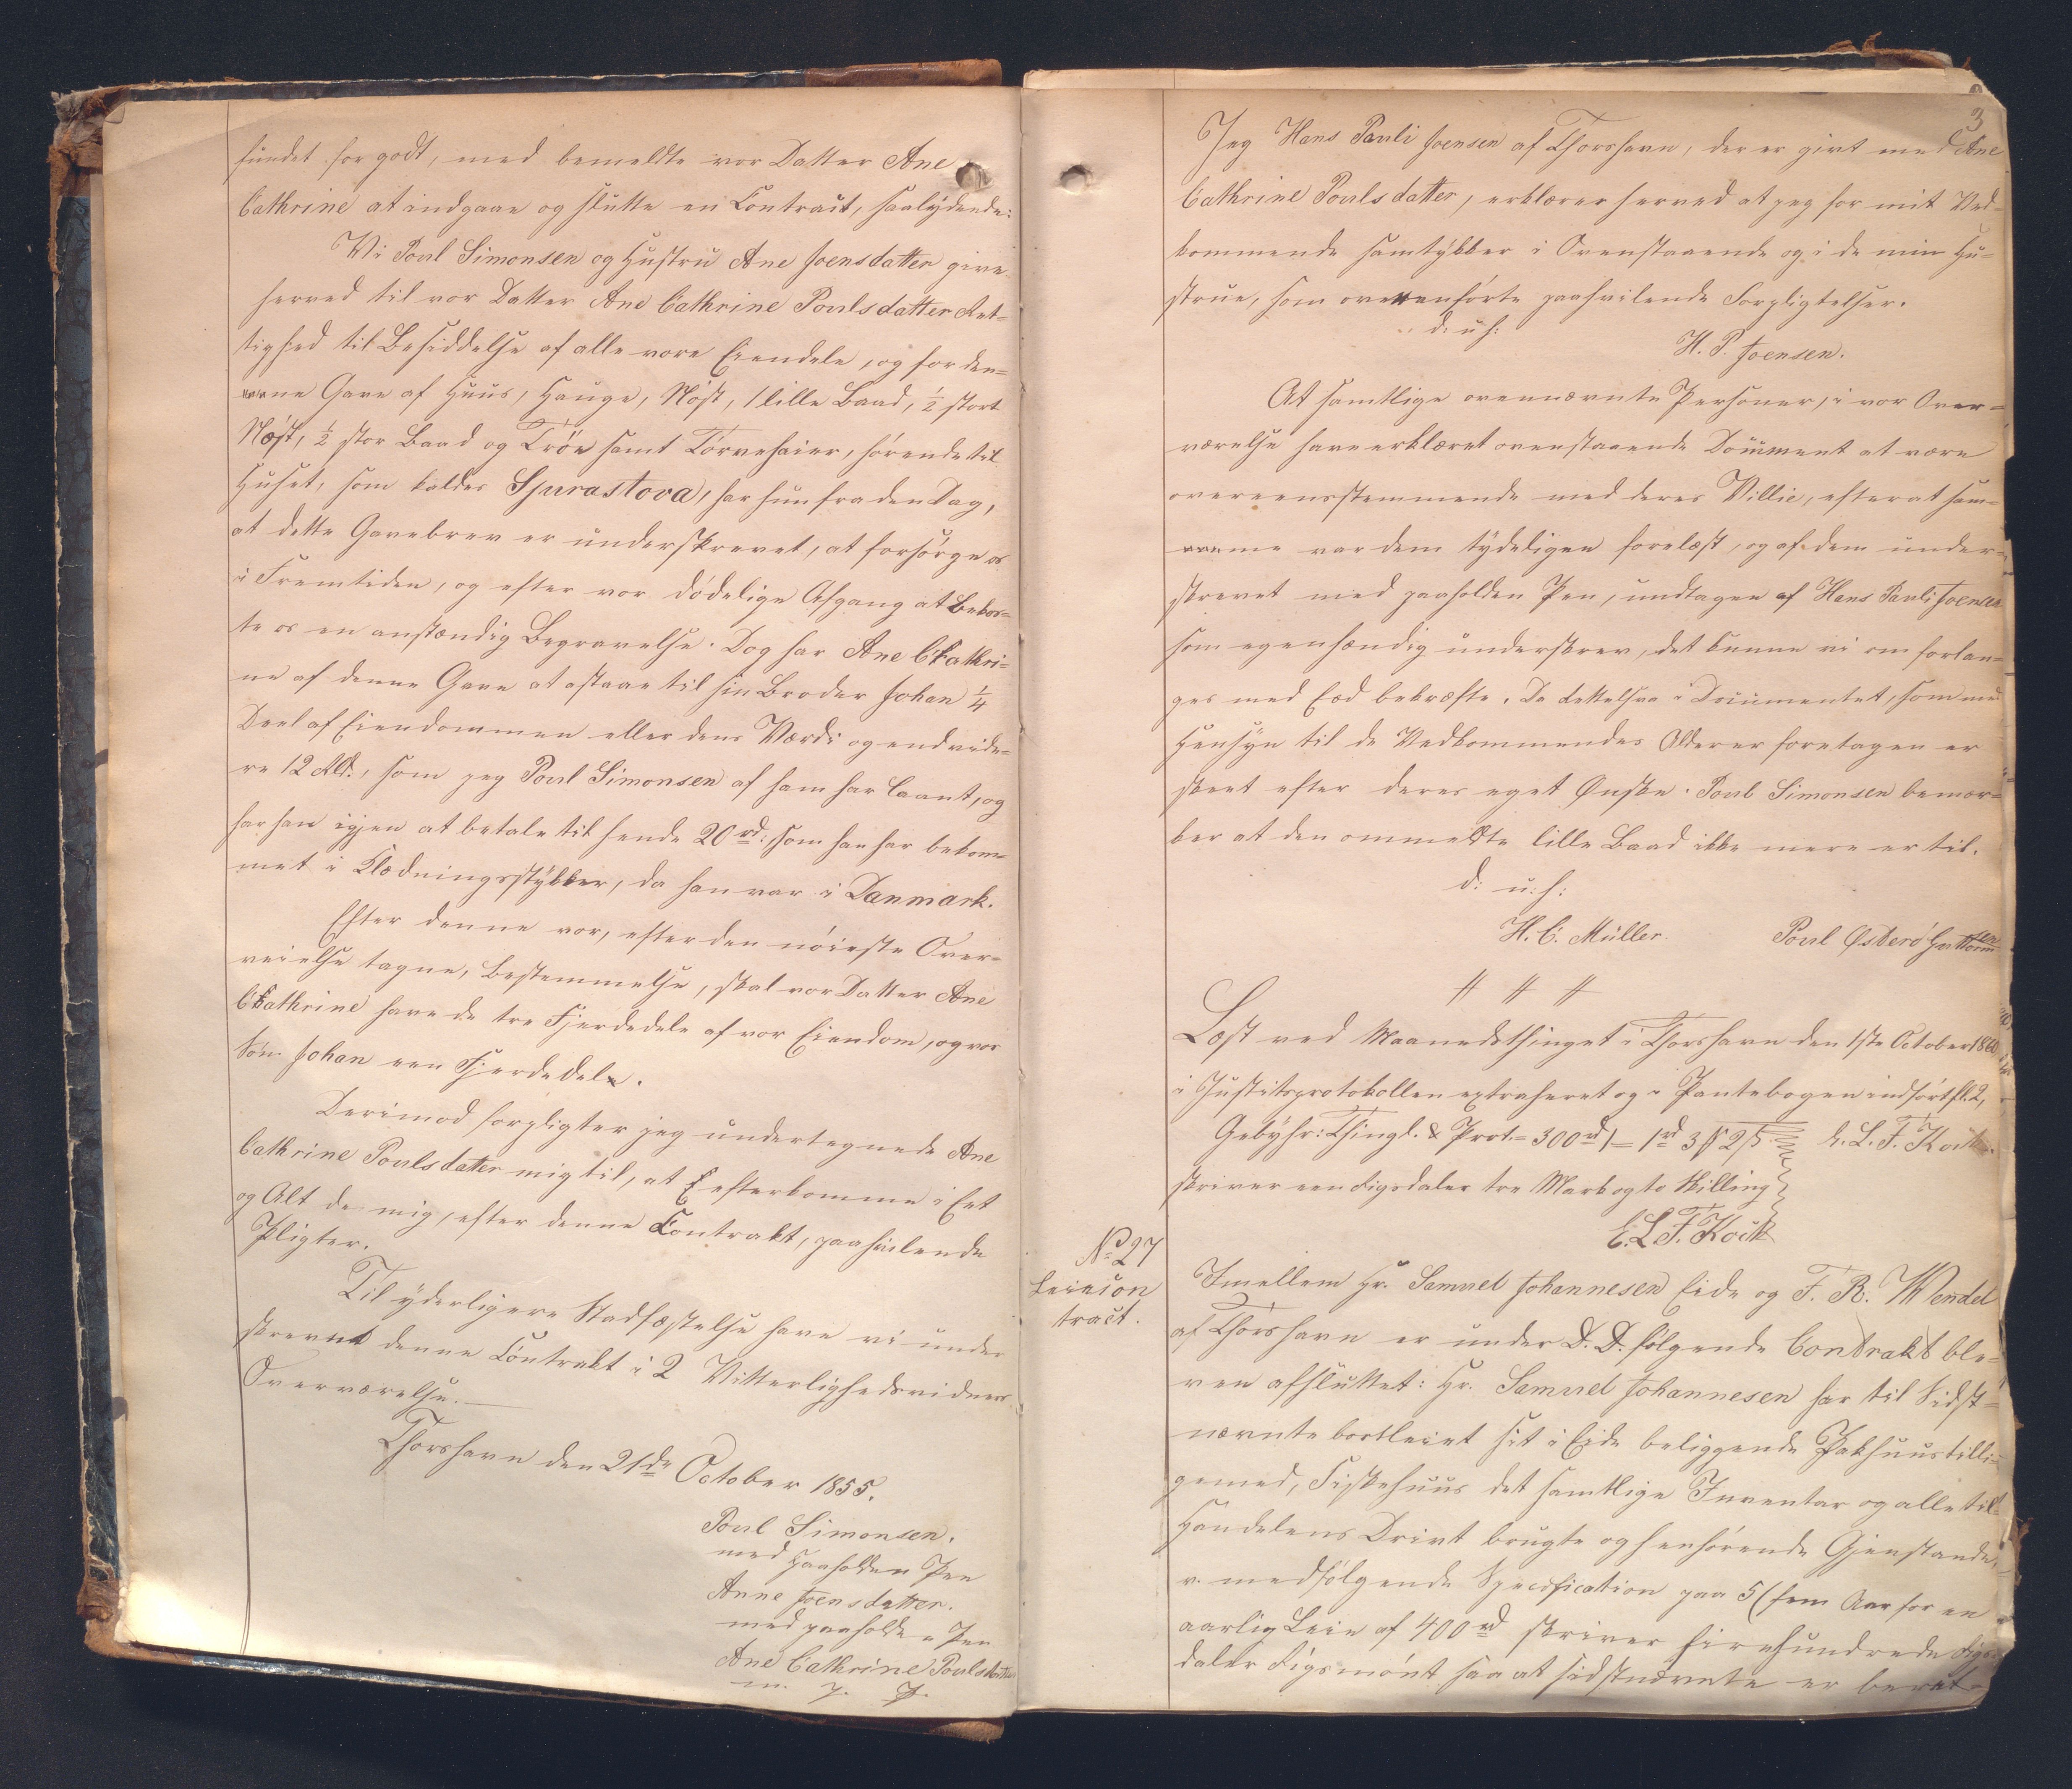 fundet for godt, med bemeldte vor Datter Ane
Cathrine at indgaae og slutte en Contract, saalydende:
Vi Poul Simonsen og Hustru Ane Joensdatter give
herved til vor Datter Ane Cathrine Poulsdatter Ret-
tighed til Besiddelse af alle vore Eiendele, og for den-
ne Gave af Huus, Hauge, Nøst, 1 lille Baad, ½ stort
Nøst, ½ stor Baad og Trøe samt Tørvehaier, hørende til
Huset, som kaldes Sjurastova, har hun fra den Dag,
at dette Gavebrev er underskrevet, at forsørge os
i Fremtiden, og efter vor dødelige Afgang at bekos-
te os en anstændig Begravelse. Dog har Ane Cathri-
ne af denne Gave at astaae til sin Broder Johan ¼
Deel af Eiendommen eller dens Værdi og endvide-
re 12 Rd., som jeg Poul Simonsen af ham har laant, og
har han igjen at betale til hende 20 rd: som han har bekom-
met i Klædningsstykker, da han var i Danmark.
Efter denne vor, efter den nøieste Over-
veielse tagne, Bestemmelse, skal vor Datter Ane
Cathrine have de tre Fjerdedele af vor Eiendom, og vor
Søn Johan een Fjerdedel.
Derimod forpligter jeg undertegnede Ane
Cathrine Poulsdatter mig til, at efterkomme i Eet
og Alt de mig, efter denne Contrakt, paahvilende
Pligter.
Til yderligere Stadfæstelse have vi under
skrevet denne Contrakt i 2 Vitterlighedsvidners
Overværelse.
Thorshavn den 21de October 1855.
Poul Simonsen.
med paaholden Pen
Anne Joensdatter.
med paaholden Pen
Ane Cathrine Poulsdatter
m. p. P.
3
Jeg Hans Pauli Joensen af Thorshavn, der er givt med Ane
Cathrine Poulsdatter, erklærer herved at jeg for mit Ved-
kommende samtykker i Ovenstaaende og i de min Hu-
strue, som ovenanførte paahvilende Forpligtelser.
d: u: s:
H. P. Joensen.
At samtlige ovennævnte Personer, i vor Over-
værelse have erklæret ovenstaaende Document at være
overeensstemmende med deres Villie, efterat sam-
me var dem tydeligen forelæst, og af dem under-
skrevet med paaholden Pen, undtagen af Hans Pauli Joensen
som egenhændig underskrev, det kunne vi om forlan-
ges med Eed bekræfte. De Rettelser i Documentet, som med
Hensyn til de Vedkommendes Alder er foretagen er
skeet efter deres eget Ønske. Poul Simonsen bemær-
ker at den ommeldte lille Baad ikke mere er til.
d: u: s:
H. C. Müller. Poul Østerö Guttormsen
# # #
Læst ved Maanedsthinget i Thorshavn den 1ste October 1860
i Justitsprotokollen extraheret og i Pantebogen indført fl. 2,
Gebyhr: Thingl. & Prot. = 300 rd = 1 rd 3 ₻ 2 ß. E. L. F. Kock
skriver een Rigsdaler tre Mark og to Skilling
E. L. F. Kock
No 27
Leiecon
tract.
Imellem Hr. Samuel Johannesen Eide og F. R. Wendel
af Thorshavn er under D. D. følgende Contrakt ble-
ven afsluttet: Hr. Samuel Johannesen har til Sidst-
nævnte bortleiet sit i Eide beliggende Pakhuus tilli-
gemed, Fiskehuus det samtlige Inventar og alle til
Handelens Drivt brugte og henhørende Gjenstande,
v. medfølgende Specification paa 5 (fem Aar for en
aarlig Leie af 400 rd skriver firehundrede Rigs-
daler Rigsmønt saa at sidstnævnte er beret-